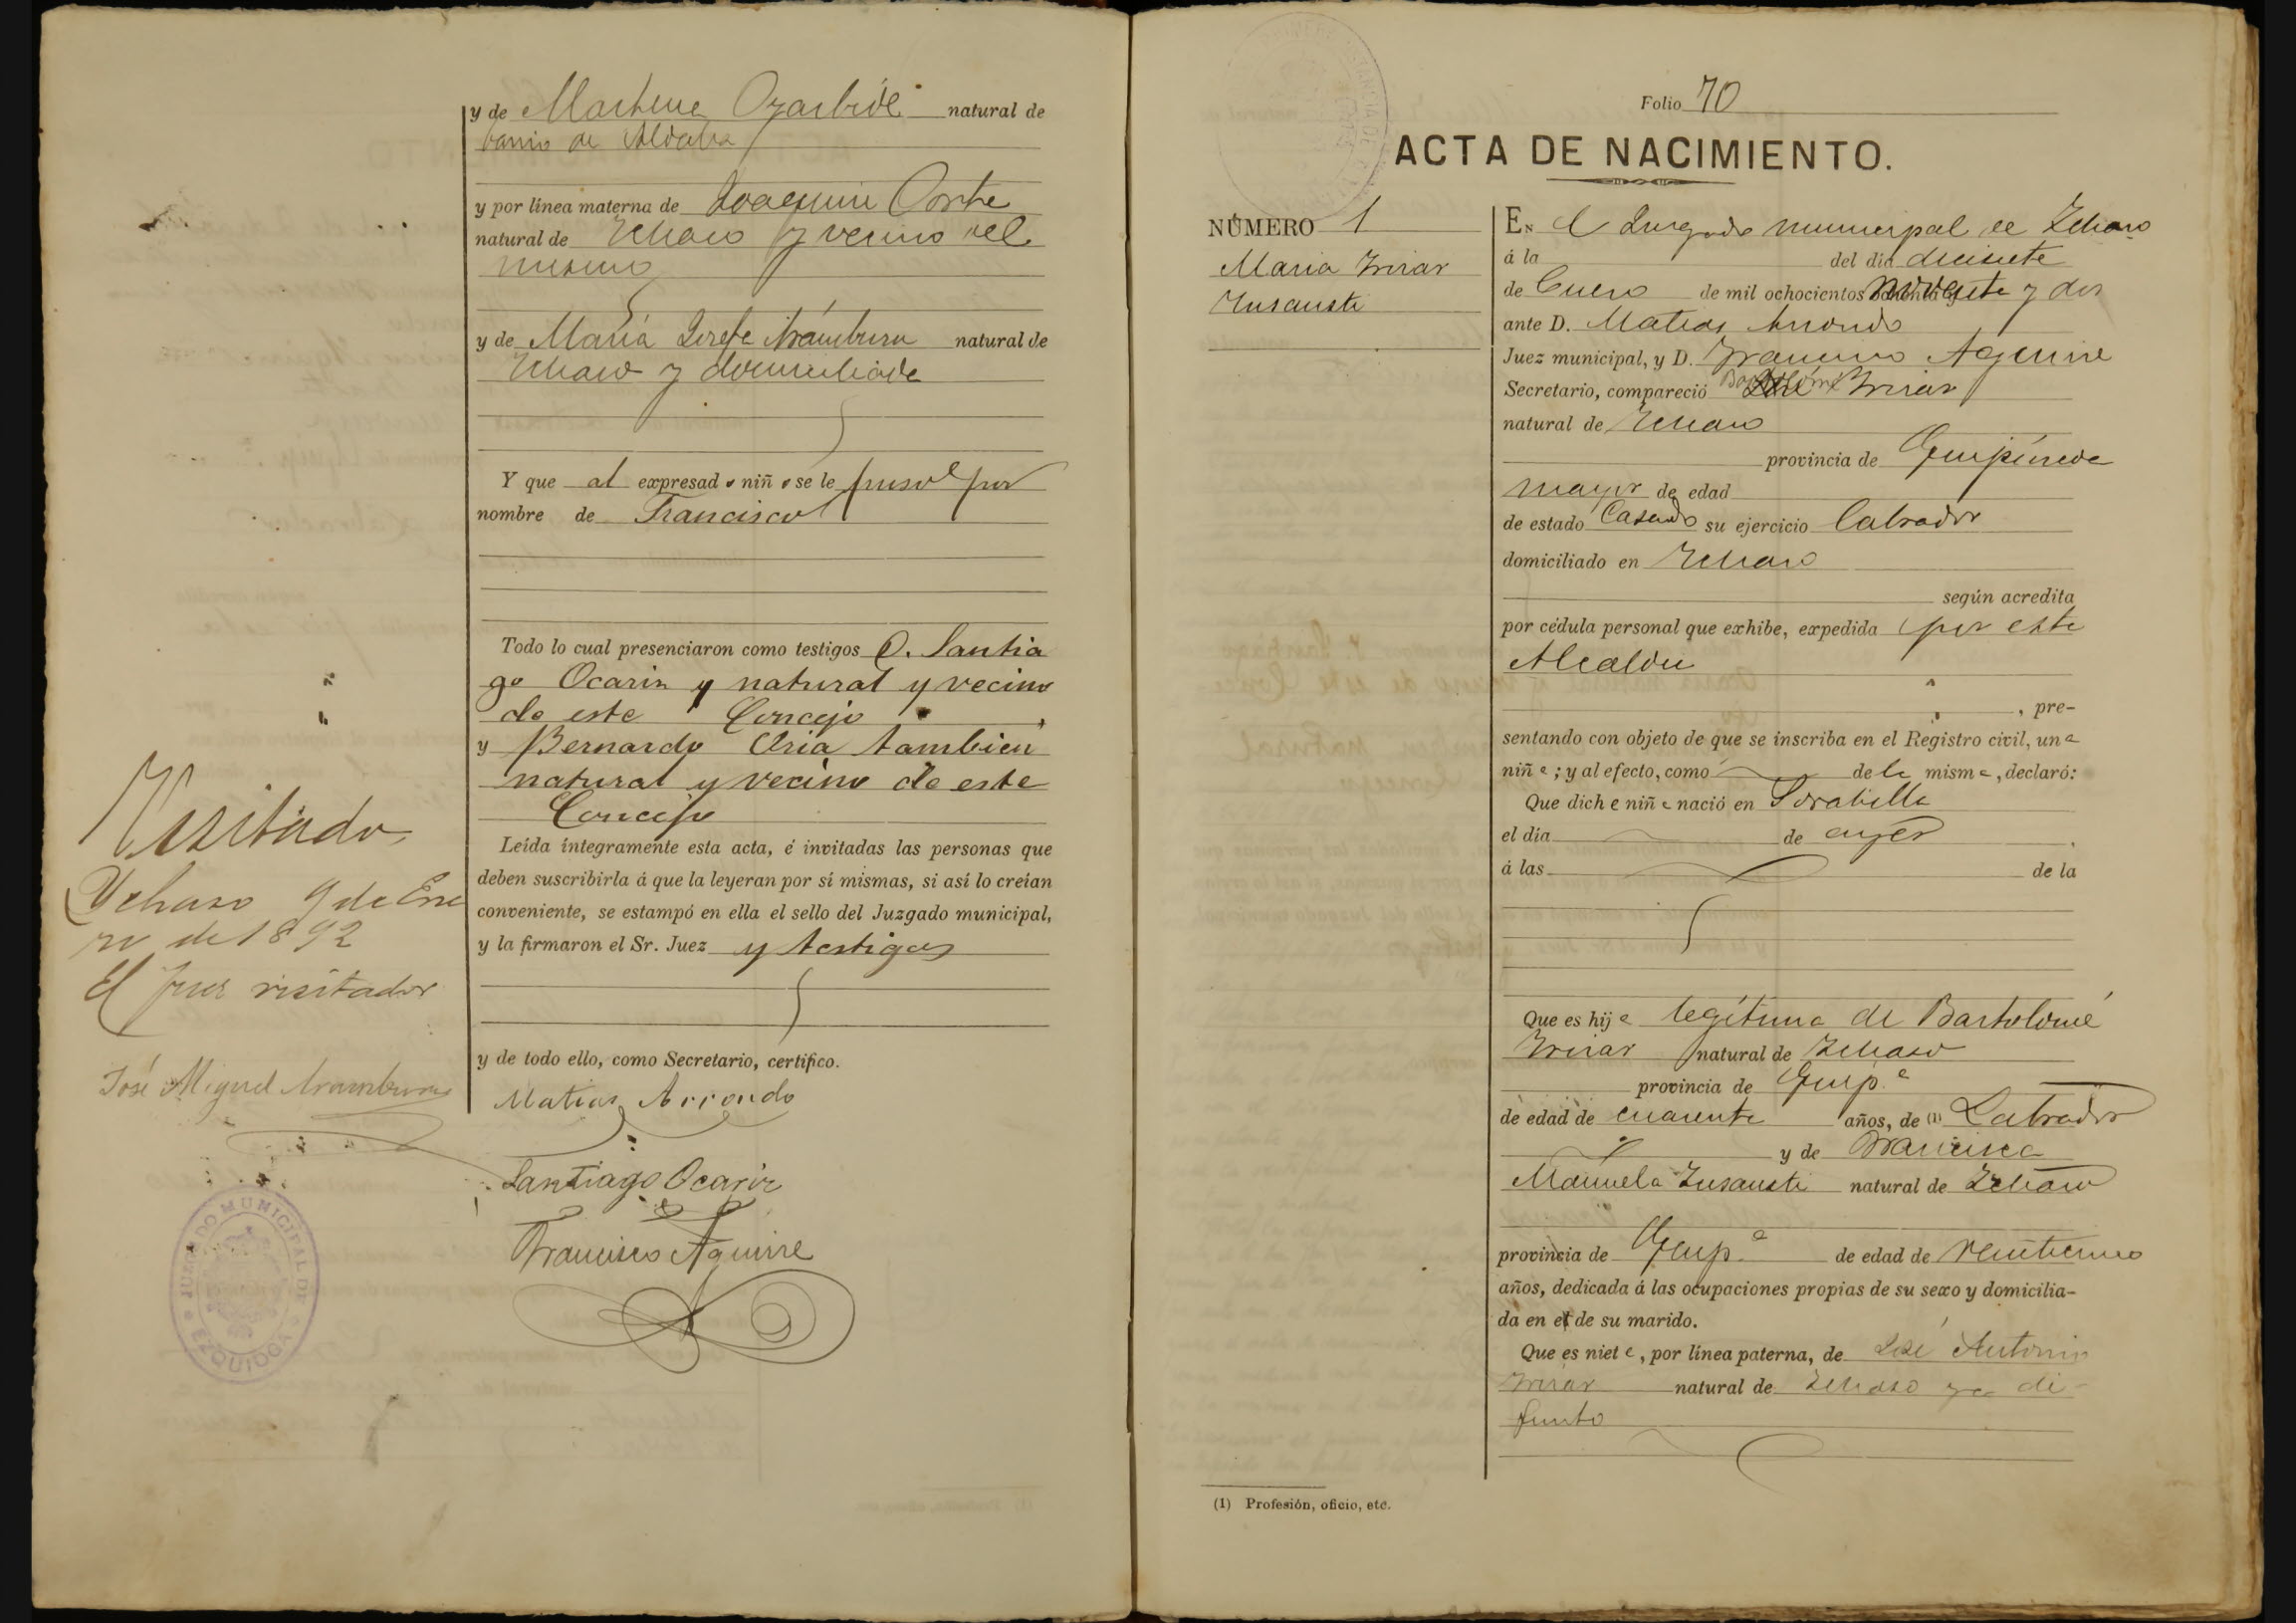 y de Martina Ozarbide natural de
barrio de Aldaba
y por línea materna de Joaquin Orte
natural de Ichaso y vecino del
mismo
y de María Josefa Arámburu natural de
Ichaso y domiciliada
Y que al expresado niño se le puso por
nombre de Francisco
Todo lo cual presenciaron como testigos D. Santia
go Ocariz y natural y vecino
de este Concejo
y Bernardo Oria tambien
natural y vecino de este
Concejo
Leída íntegramente esta acta, é invitadas las personas que
deben suscribirla á que la leyeran por sí mismas, si así lo creían
conveniente, se estampó en ella el sello del Juzgado municipal,
y la firmaron el Sr. Juez y testigos
y de todo ello, como Secretario, certifico.
Matias Arrondo
Santiago Ocariz
Francisco Aguirre
Visitado
Ychaso 9 de Ene
ro de 1892
El Juez visitador
José Miguel Aramburu
JUZGADO MUNICIPAL DE
EZQUIOGA
Folio 70
ACTA DE NACIMIENTO.
NÚMERO 1
Maria Irizar
Insausti
En el Juzgado municipal de Ichaso
á la del día diecisiete
de Enero de mil ochocientos noventa y dos
ante D. Matias Arrondo
Juez municipal, y D. Francisco Aguirre
Secretario, compareció Bartolomé Irizar
natural de Ichaso
provincia de Guipúzcoa
mayor de edad
de estado Casado su ejercicio labrador
domiciliado en Ichaso
según acredita
por cédula personal que exhibe, expedida por esta
Alcaldia
, pre-
sentando con objeto de que se inscriba en el Registro civil, una
niña; y al efecto, como de la misma, declaró:
Que dicha niña nació en
el día de ayer
á las de la
Que es hija legítima de Bartolomé
Irizar natural de Ichaso
provincia de Guip.a
de edad de cuarenta años, de (1) Labrador
y de Francisca
Manuela Insausti natural de Ichaso
provincia de Guip.a de edad de
años, dedicada á las ocupaciones propias de su sexo y domicilia-
da en el de su marido.
Que es nieta, por línea paterna, de José Antonio
Irizar natural de Ichaso ya di-
funto
(1) Profesión, oficio, etc.